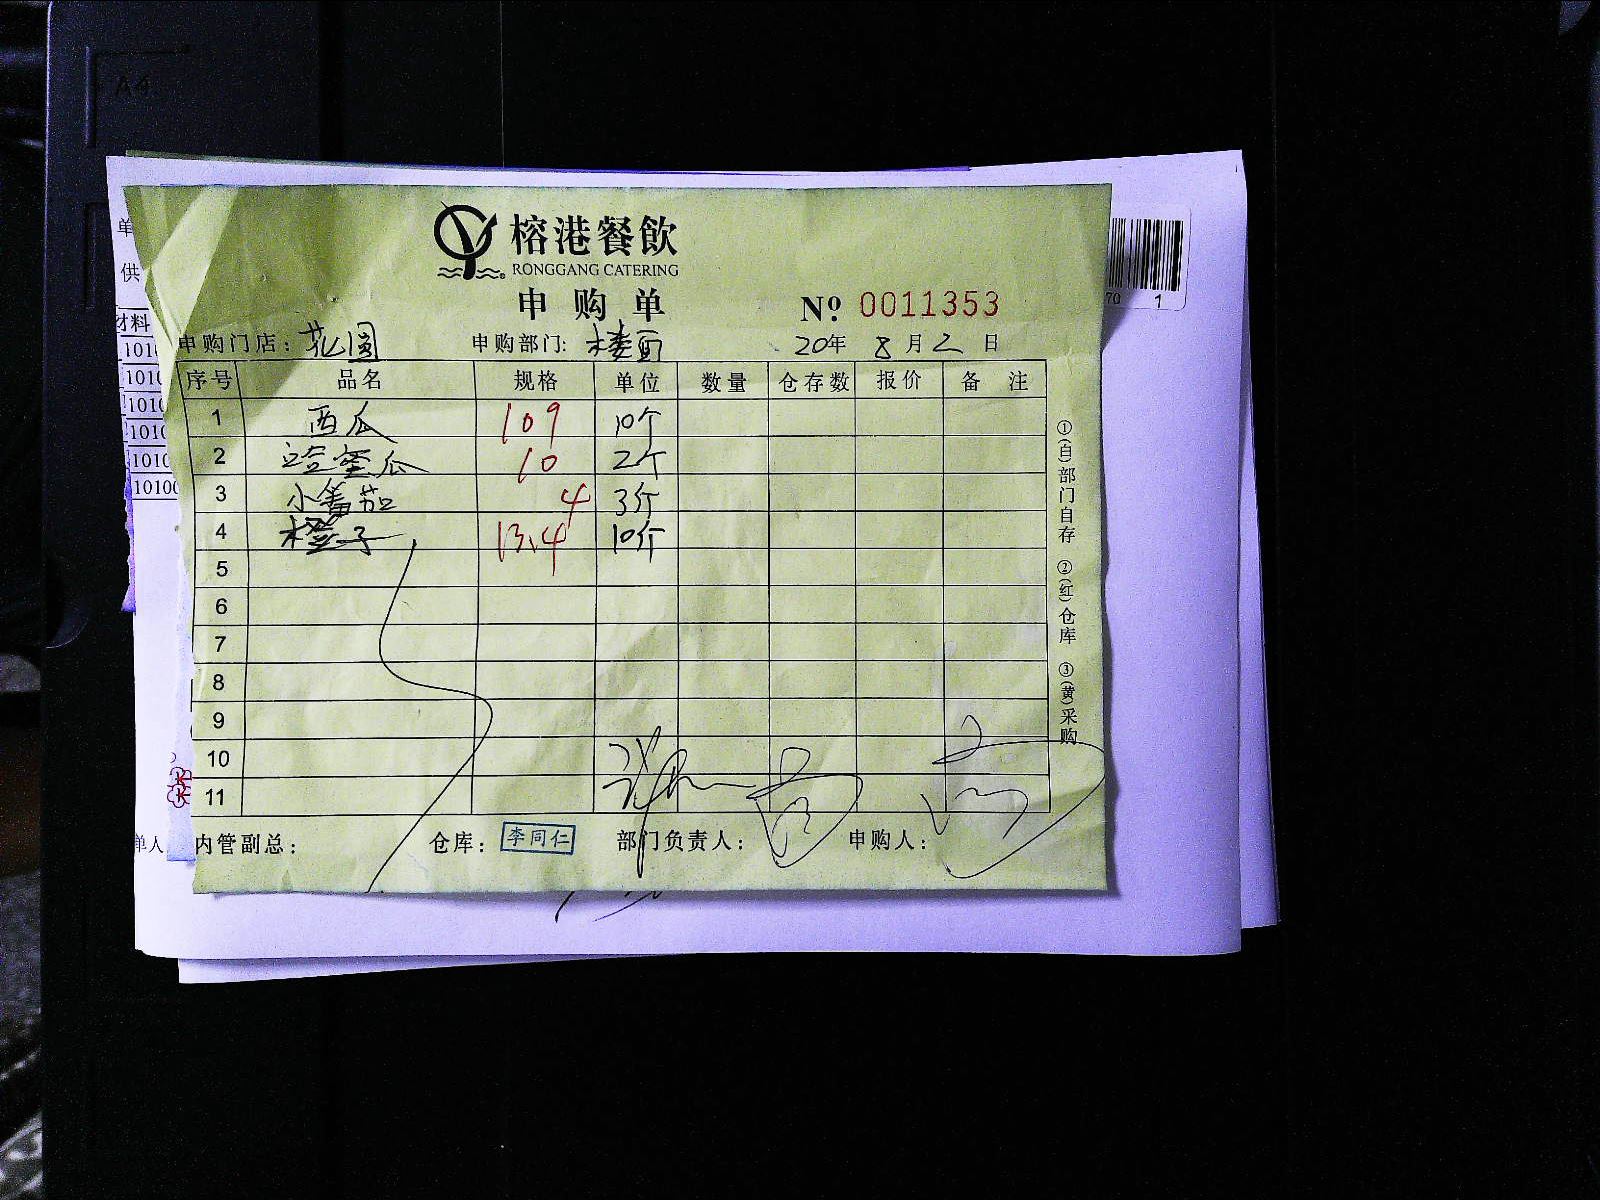 A4
榕港餐飲
RONGGANG CATERING
申购单 № 0011353
申购门店：花园 申购部门：楼面 20年 8月 2日
序号 品名 规格 单位 数量 仓存数 报价 备注
1 西瓜 109 10个
2 哈蜜瓜 10 2个
3 小番茄 4 3斤
4 橙子 13.4 10斤
5
6
7
8
9
10
11
内管副总： 仓库：李同仁 部门负责人： 申购人：
①(白)部门自存 ②(红)仓库 ③(黄)采购
单
供
材料
1010
1010
1010
1010
1010
10100
单人
70 1